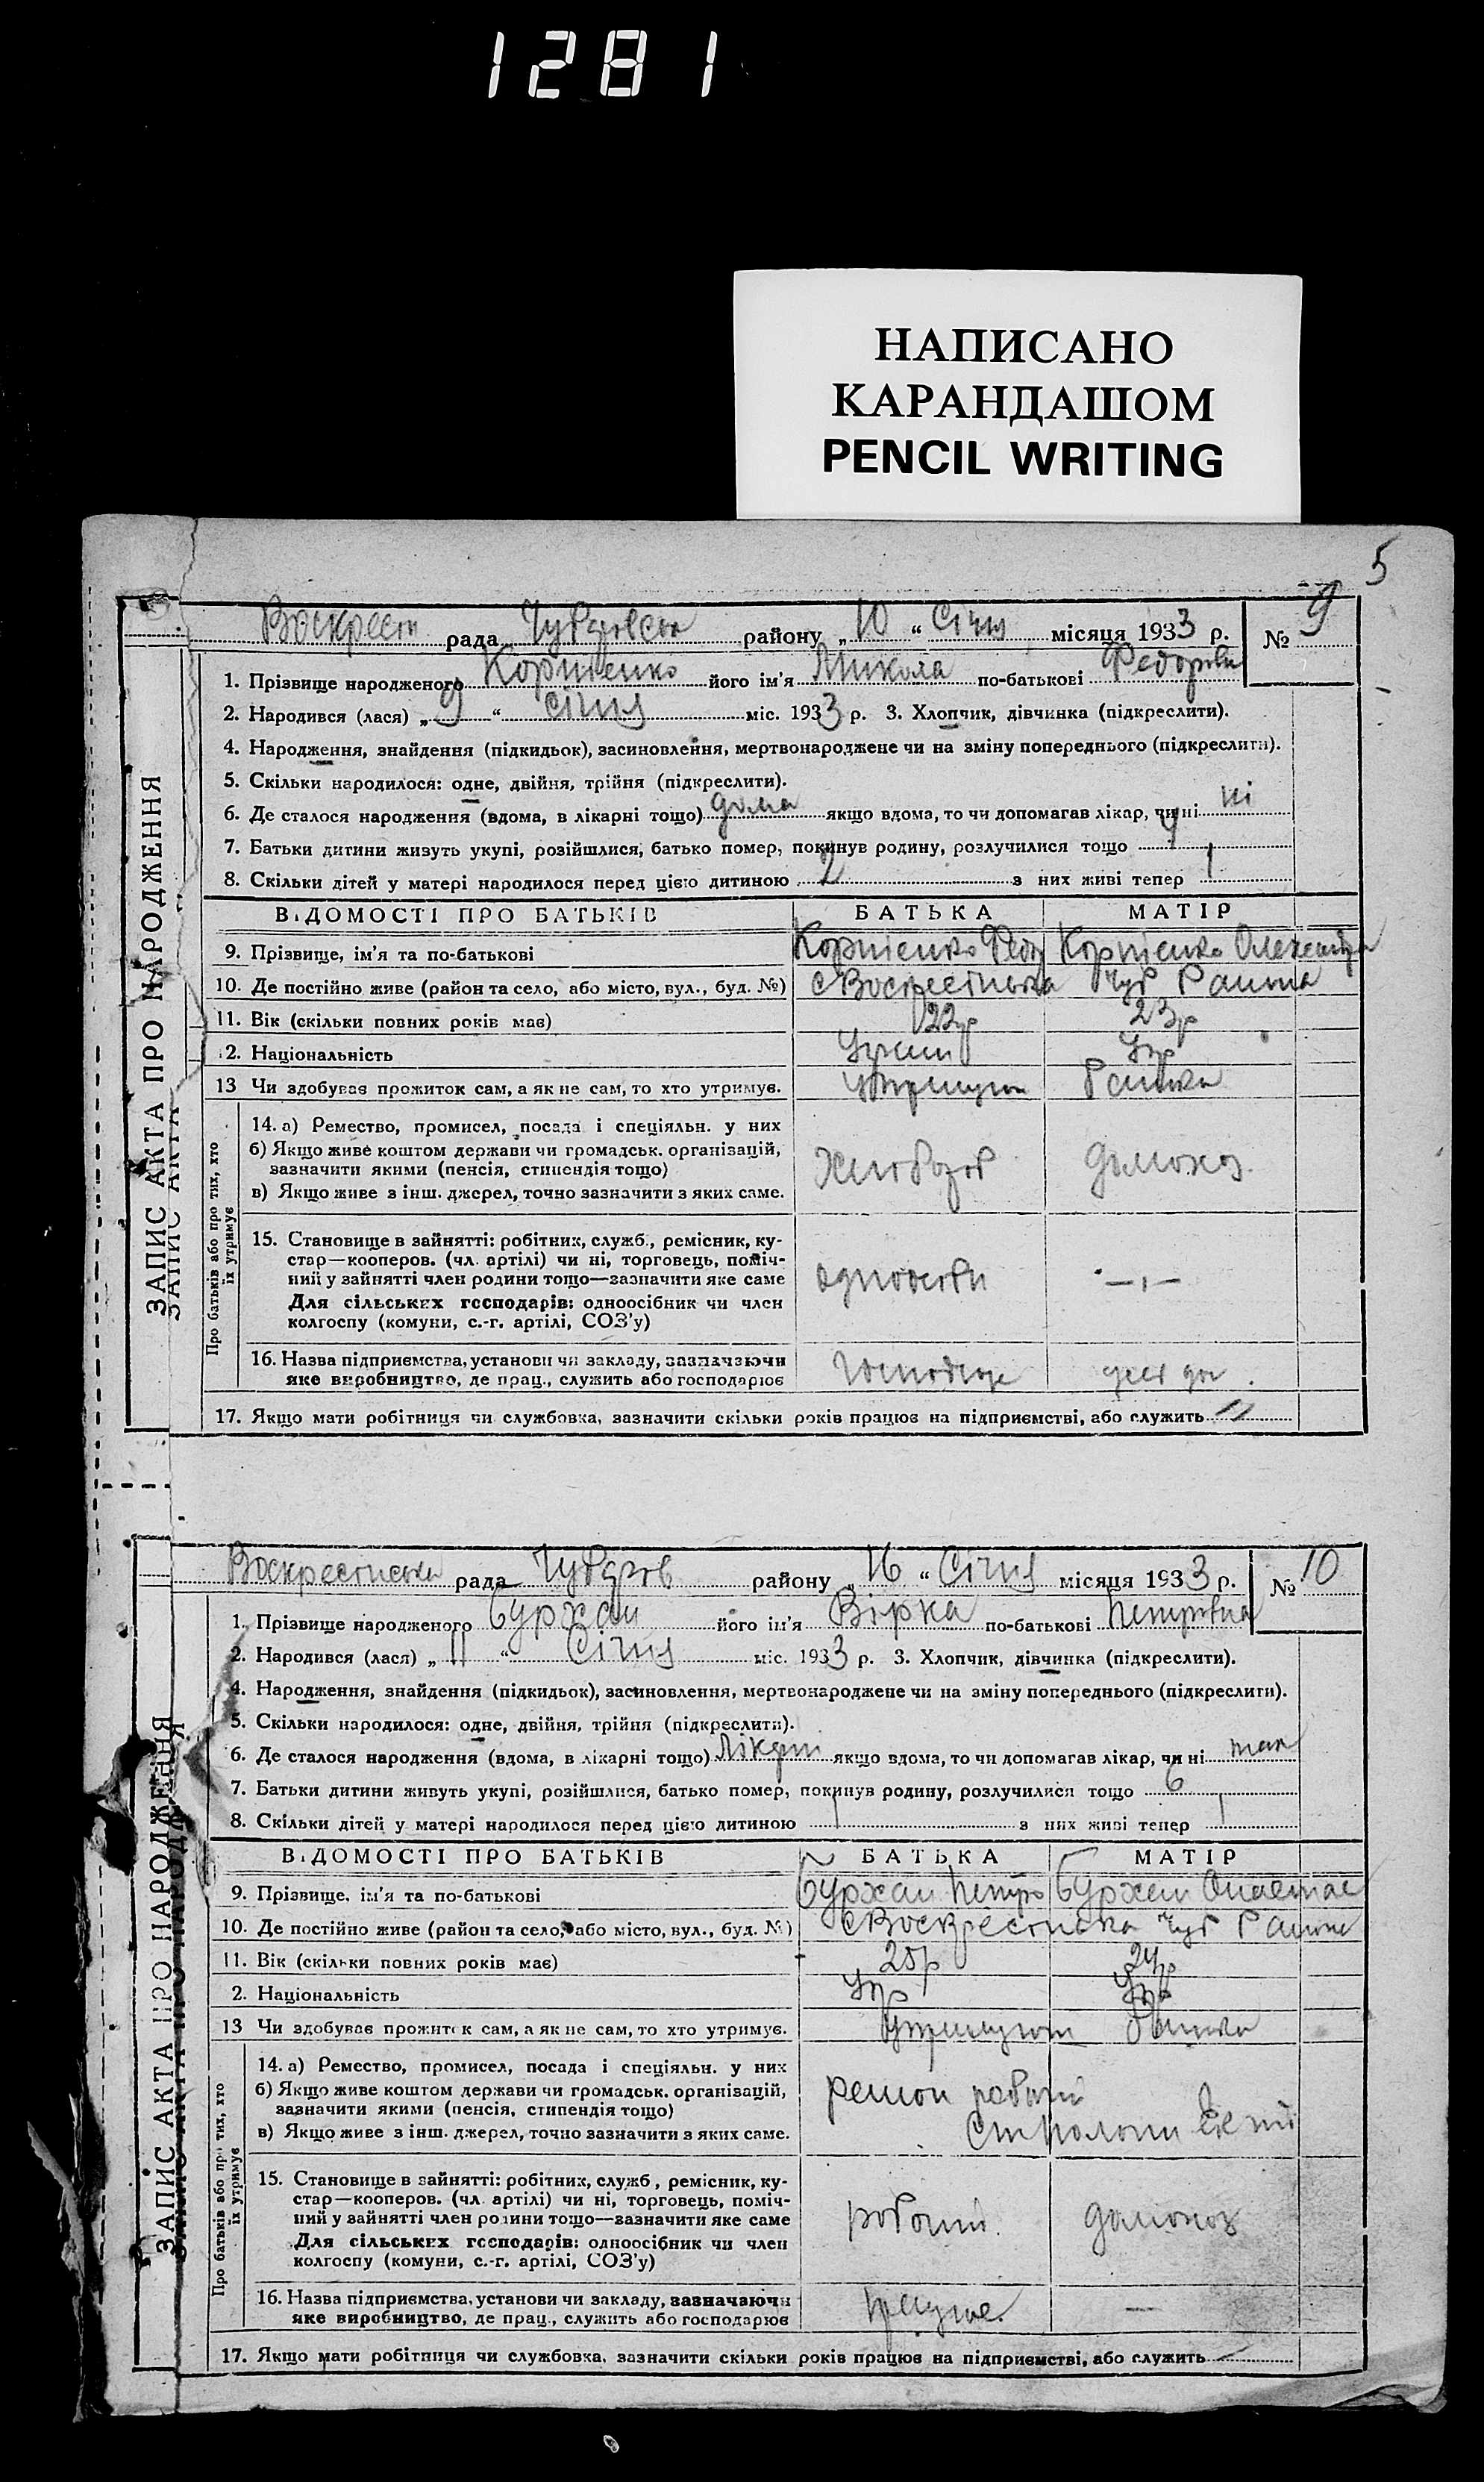 1281
НАПИСАНО
КАРАНДАШОМ
PENCIL WRITING
5
Воскресен рада Чубарівськ району „10“ Січня місяця 1933 р. № 9
1. Прізвище народженого Корнієнко його ім'я Микола по-батькові Федорови
2. Народився (лася) „9“ Січня міс. 1933 р. 3. Хлопчик, дівчинка (підкреслити).
4. Народження, знайдення (підкидьок), засиновлення, мертвонароджене чи на зміну попереднього (підкреслити).
5. Скільки народилося: одне, двійня, трійня (підкреслити).
6. Де сталося народження (вдома, в лікарні тощо) дома якщо вдома, то чи допомагав лікар, чи ні ні
7. Батьки дитини живуть укупі, розійшлися, батько помер, покинув родину, розлучилися тощо у
8. Скільки дітей у матері народилося перед цією дитиною 2 з них живі тепер 1
ВІДОМОСТІ ПРО БАТЬКІВ БАТЬКА МАТІР
9. Прізвище, ім'я та по-батькові Корнієнко Федір Корнієнко Олександра
10. Де постійно живе (район та село, або місто, вул., буд. №) с Воскресенська Чуб Району
11. Вік (скільки повних років має) 22р 23р
12. Національність Украин Укр
13 Чи здобуває прожиток сам, а як не сам, то хто утримує. Утримують Батька
Про батьків або про тих, хто їх утримує
14. а) Ремество, промисел, посада і спеціяльн. у них
б) Якщо живе коштом держави чи громадськ. організацій,
зазначити якими (пенсія, стипендія тощо)
в) Якщо живе з інш. джерел, точно зазначити з яких саме.
Хлібороб домохоз.
15. Становище в зайнятті: робітник, служб., ремісник, ку-
стар—кооперов. (чл. артілі) чи ні, торговець, поміч-
ний у зайнятті член родини тощо—зазначити яке саме
Для сільських господарів: одноосібник чи член
колгоспу (комуни, с.-г. артілі, СОЗ'у)
одноосібн —„—
16. Назва підприємства, установи чи закладу, зазначаючи
яке виробництво, де прац., служить або господарює
17. Якщо мати робітниця чи службовка, зазначити скільки років працює на підприємстві, або служить
ЗАПИС АКТА ПРО НАРОДЖЕННЯ
Воскресенська рада Чубарів району „16“ Січня місяця 1933 р. № 10
1. Прізвище народженого Буржан його ім'я Вірка по-батькові Петрівна
2. Народився (лася) „11“ Січня міс. 1933 р. 3. Хлопчик, дівчинка (підкреслити).
4. Народження, знайдення (підкидьок), засиновлення, мертвонароджене чи на зміну попереднього (підкреслити).
5. Скільки народилося: одне, двійня, трійня (підкреслити).
6. Де сталося народження (вдома, в лікарні тощо) Лікарн якщо вдома, то чи допомагав лікар, чи ні так
7. Батьки дитини живуть укупі, розійшлися, батько помер, покинув родину, розлучилися тощо
8. Скільки дітей у матері народилося перед цією дитиною 1 з них живі тепер 1
ВІДОМОСТІ ПРО БАТЬКІВ БАТЬКА МАТІР
9. Прізвище, ім'я та по-батькові Буржан Петро Буржан Анастас
10. Де постійно живе (район та село, або місто, вул., буд. №) с Воскресенська Чуб Району
11. Вік (скільки повних років має) 25р 24р
2. Національність Укр Укр
13 Чи здобуває прожиток сам, а як не сам, то хто утримує. Утримують Батька
Про батьків або про тих, хто їх утримує
14. а) Ремество, промисел, посада і спеціяльн. у них
б) Якщо живе коштом держави чи громадськ. організацій,
зазначити якими (пенсія, стипендія тощо)
в) Якщо живе з інш. джерел, точно зазначити з яких саме.
15. Становище в зайнятті: робітник, служб., ремісник, ку-
стар—кооперов. (чл. артілі) чи ні, торговець, поміч-
ний у зайнятті член родини тощо—зазначити яке саме
Для сільських господарів: одноосібник чи член
колгоспу (комуни, с.-г. артілі, СОЗ'у)
робочий. домохоз
16. Назва підприємства, установи чи закладу, зазначаючи
яке виробництво, де прац., служить або господарює
працює. —
17. Якщо мати робітниця чи службовка, зазначити скільки років працює на підприємстві, або служить —
ЗАПИС АКТА ПРО НАРОДЖЕННЯ